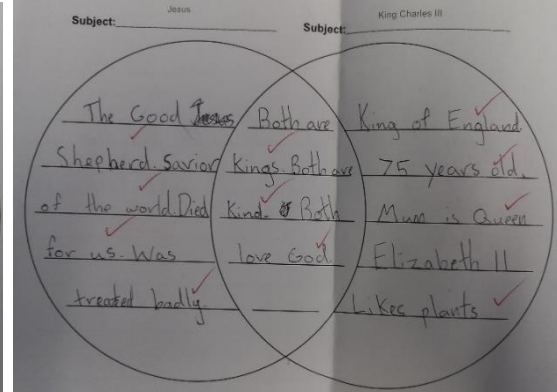 Jesus
King Charles III
Subject:
Subject:
The Good
Shepherd. Savior
of the world. Died
for us. Was
treated badly.
Both are
Kings. Both are
Kind. Both
love God.
King of England
75 years old.
Mum is Queen
Elizabeth II
Likes plants